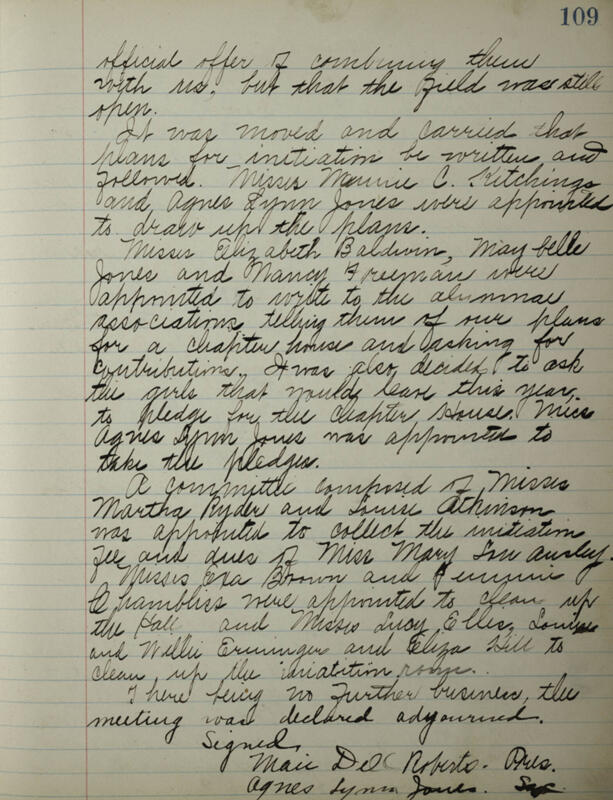 109
official offer of combining them
with us, but that the field was still
open.
It was moved and carried that
plans for initiation be written and
followed. Misses Mamie C. Kitchings
and Agnes Lynn Jones were appointed
to draw up the plans.
Misses Elizabeth Baldwin, May belle
Jones and Nancy Freeman were
appointed to write to the alumnae
associations, telling them of our plans
for a chapter house and asking for
contributions. It was also decided to ask
the girls that would leave this year,
to pledge for the Chapter House. Miss
Agnes Lynn Jones was appointed to
take the pledges.
A committee composed of Misses
Martha Ryder and Louise Atkinson
was appointed to collect the initiation
fee and dues of Miss Mary Lou Ansley.
Misses Eva Brown and
Chambliss were appointed to clean up
the Hall and Misses Lucy Elles, Louise
and Willie Erminger and Eliza Hill to
clean up the iniatition room.
There being no further business, the
meeting was declared adyourned.
Signed,
Maie Dell Roberts - Pres.
Agnes Lynn Jones. Sec